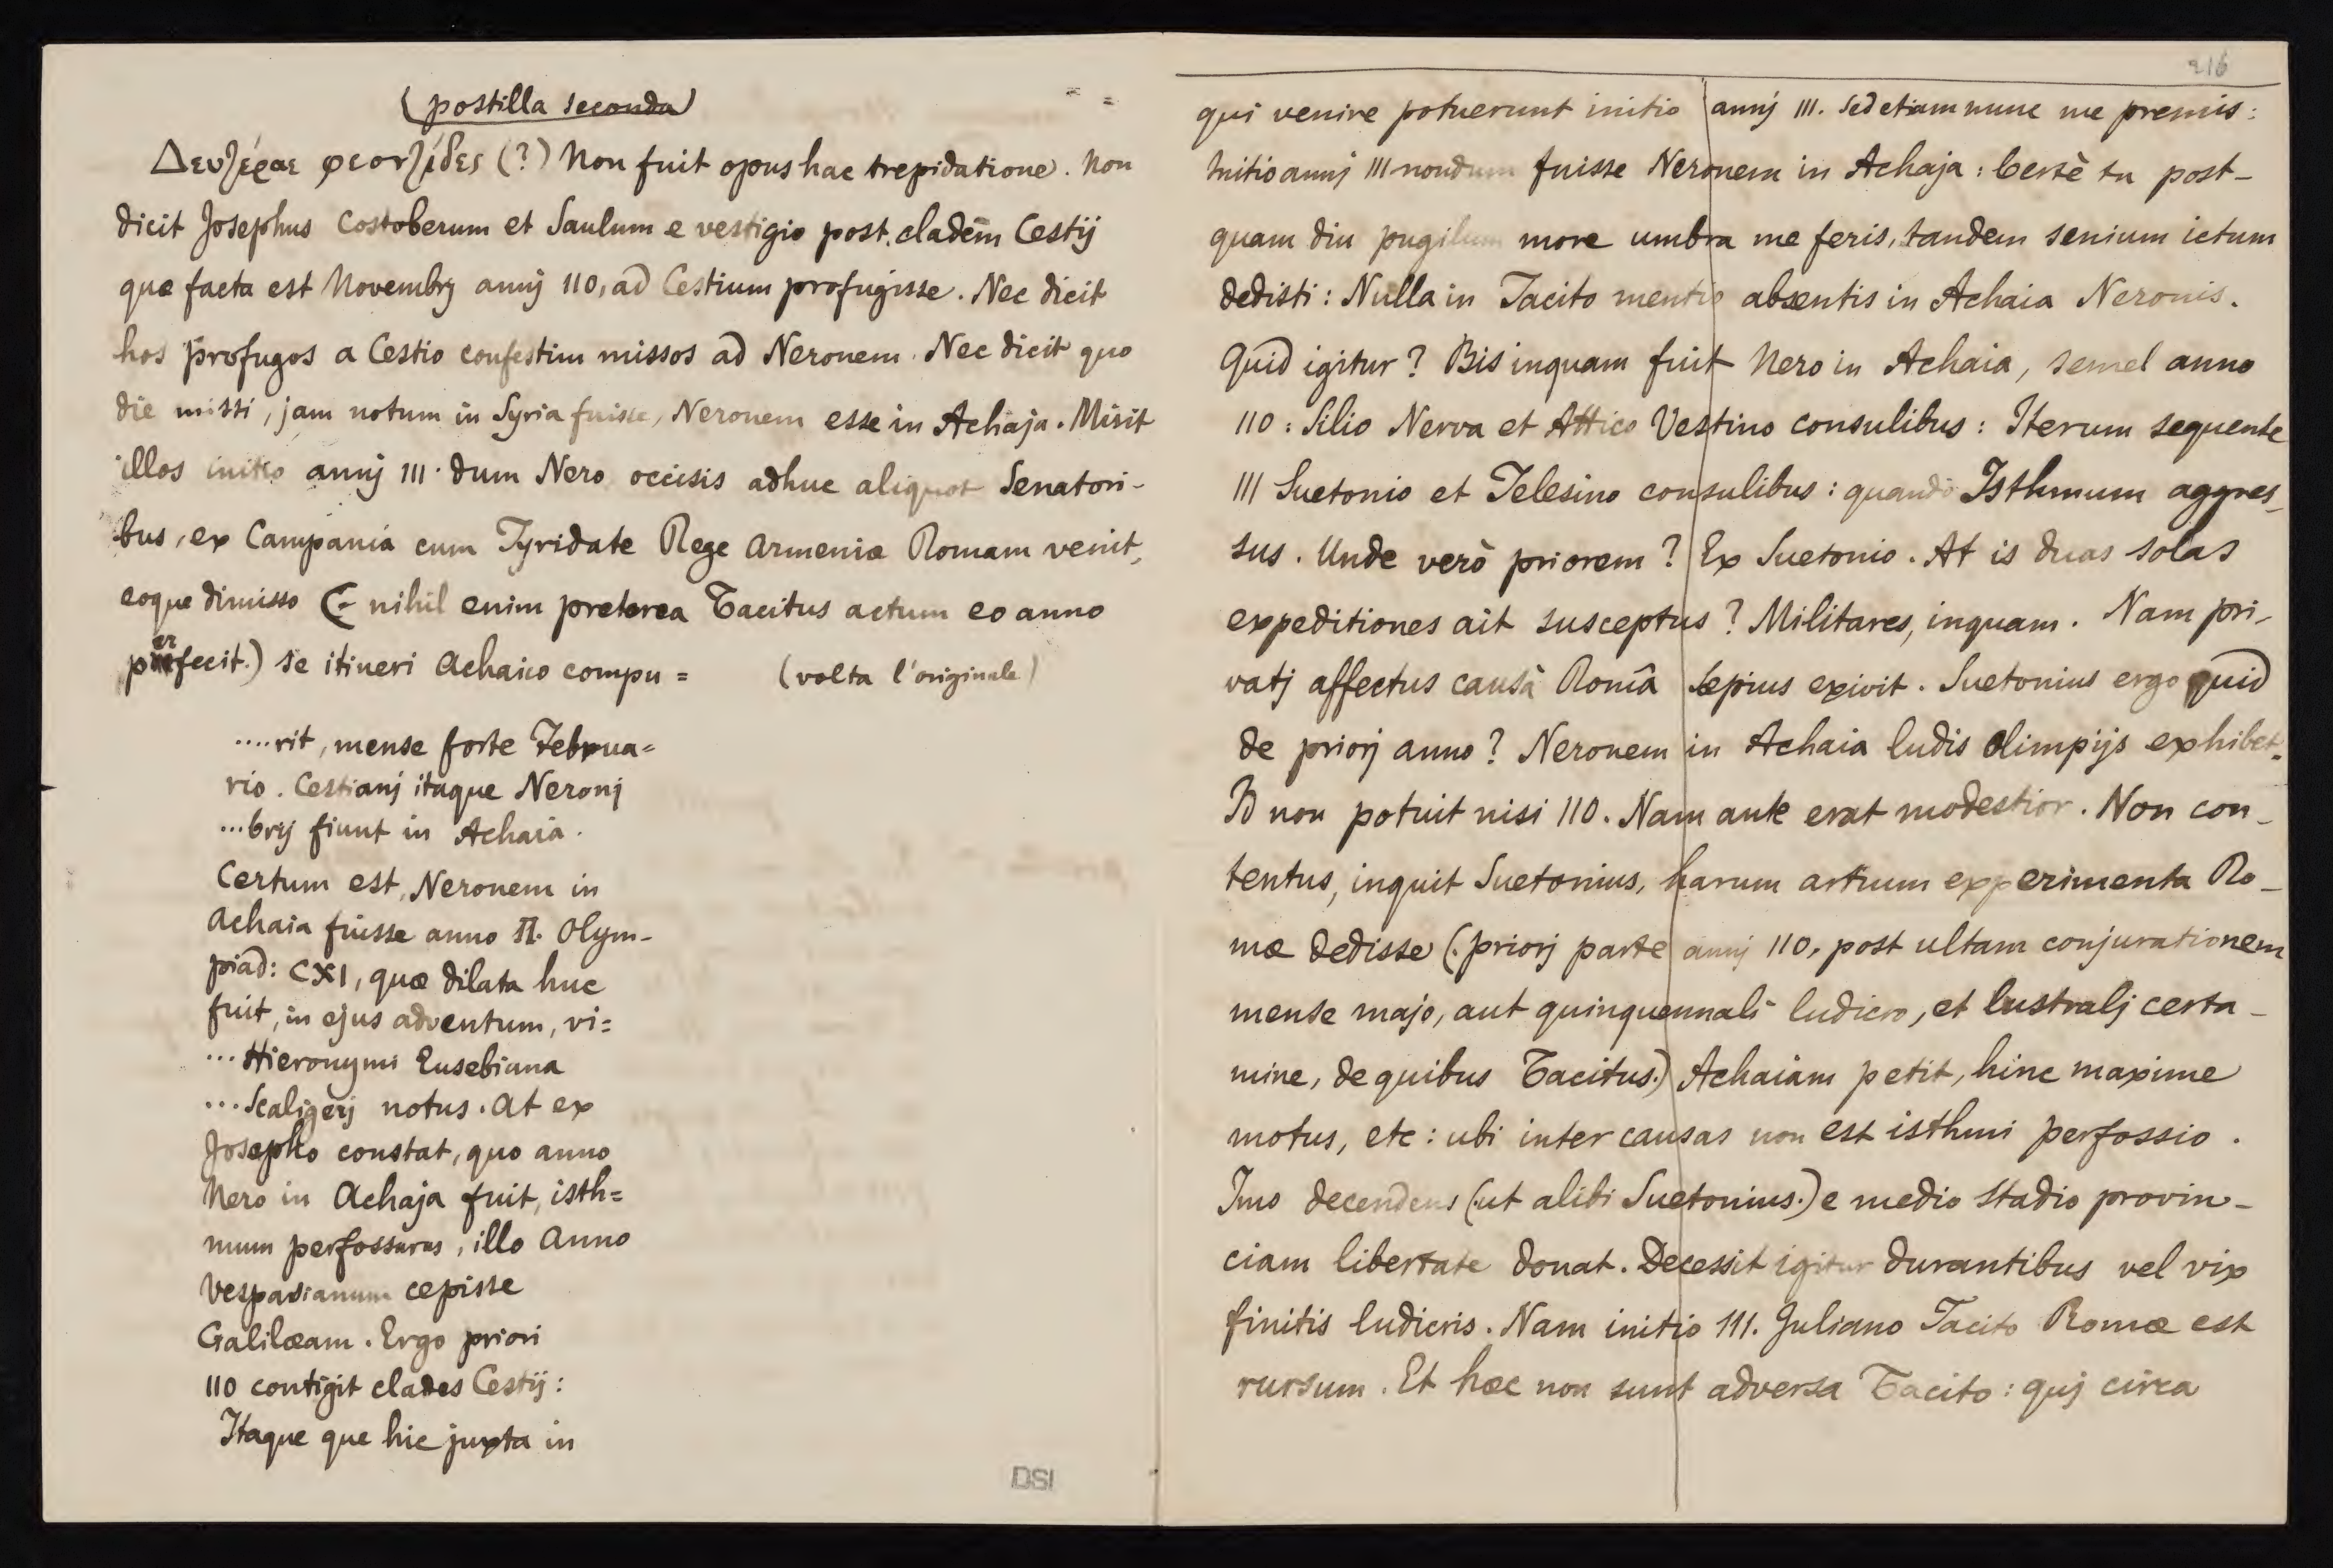 (postilla seconda)
Δευ̃ζέραι φεονζίδες (?) Non fuit opus hac trepidatione. Non
dicit Josephus Costoberum et Saulum e vestigio post cladem Cestij
que facta est Novembrj annj 110, ad Cestium profugisse. Nec dicit
hos profugos a Cestio confestim missos ad Neronem. Nec dicit quo
die missi, jam notum in Syria fuisse, Neronem esse in Achaja. Misit
illos initio annj 111. dum Nero occisis adhuc aliquot Senatori-
bus, ex Campania cum Tyridate Rege Armeniæ Romam venit,
eoque dimisso (- nihil enim preterea Tacitus actum eo anno
perfecit.) se itineri Achaico compu= (volta l'originale)
....rit, mense forte Februa=
rio. Cestianj itaque Neronj
...brij fiunt in Achaia.
Certum est, Neronem in
Achaia fuisse anno II. Olym-
piad: CXI, quæ dilata huc
fuit, in ejus adventum, vi=
... Hieronymi Eusebiana
... Scaligerj notus. At ex
Josepho constat, quo anno
Nero in Achaja fuit, isth=
mum perfossurus, illo Anno
Vespasianum cepisse
Galilæam. Ergo priori
110 contigit clades Cestij:
Itaque que hic juxta in
216
qui venire potuerunt initio annj 111. Sed etiam nunc me premis:
Initio annj 111 nondum fuisse Neronem in Achaja: Certè tu post-
quam diu pugilum more umbra me feris, tandem senium ictum
dedisti: Nulla in Tacito mentio absentis in Achaia Neronis.
Quid igitur? Bis inquam fuit Nero in Achaia, semel anno
110: Silio Nerva et Attico Vestino consulibus: Iterum sequente
111 Suetonio et Telesino consulibus: quando Isthmum aggres_
sus. Unde verò priorem? Ex Suetonio. At is duas solas
expeditiones ait susceptus? Militares, inquam. Nam pri-
vatj affectus causâ Româ sepius exivit. Suetonius ergo quid
de priorj anno? Neronem in Achaia ludis olimpijs exhibet.
Id non potuit nisi 110. Nam ante erat modestior. Non con-
tentus, inquit Suetonius, harum artium experimenta Ro-
mæ dedisse (. priorj parte annj 110. post ultam conjurationem
mense majo, aut quinquennali ludicro, et lustralj certa-
mine, de quibus Tacitus.) Achaiam petit, hinc maxime
motus, etc: ubi inter causas non est isthmi perfossio.
Imo decendens (.ut alibi Suetonius.) e medio stadio provin-
ciam libertate donat. Decessit igitur durantibus vel vix
finitis ludicris. Nam initio 111. Juliano Tacito Romæ est
rursum. Et hæc non sunt adversa Tacito: quj circa
DSI